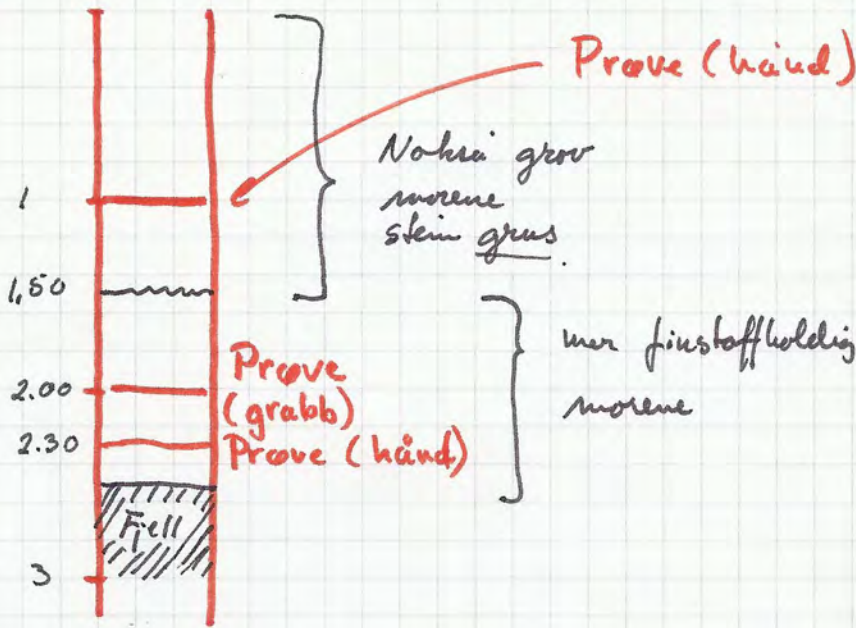 Prøve (hånd)
Nokså grov
morene
stein grus.
1
1,50
mer finstoffholdig
morene
Prøve
(grabb)
2.00
2.30
Prøve (hånd)
Fjell
3